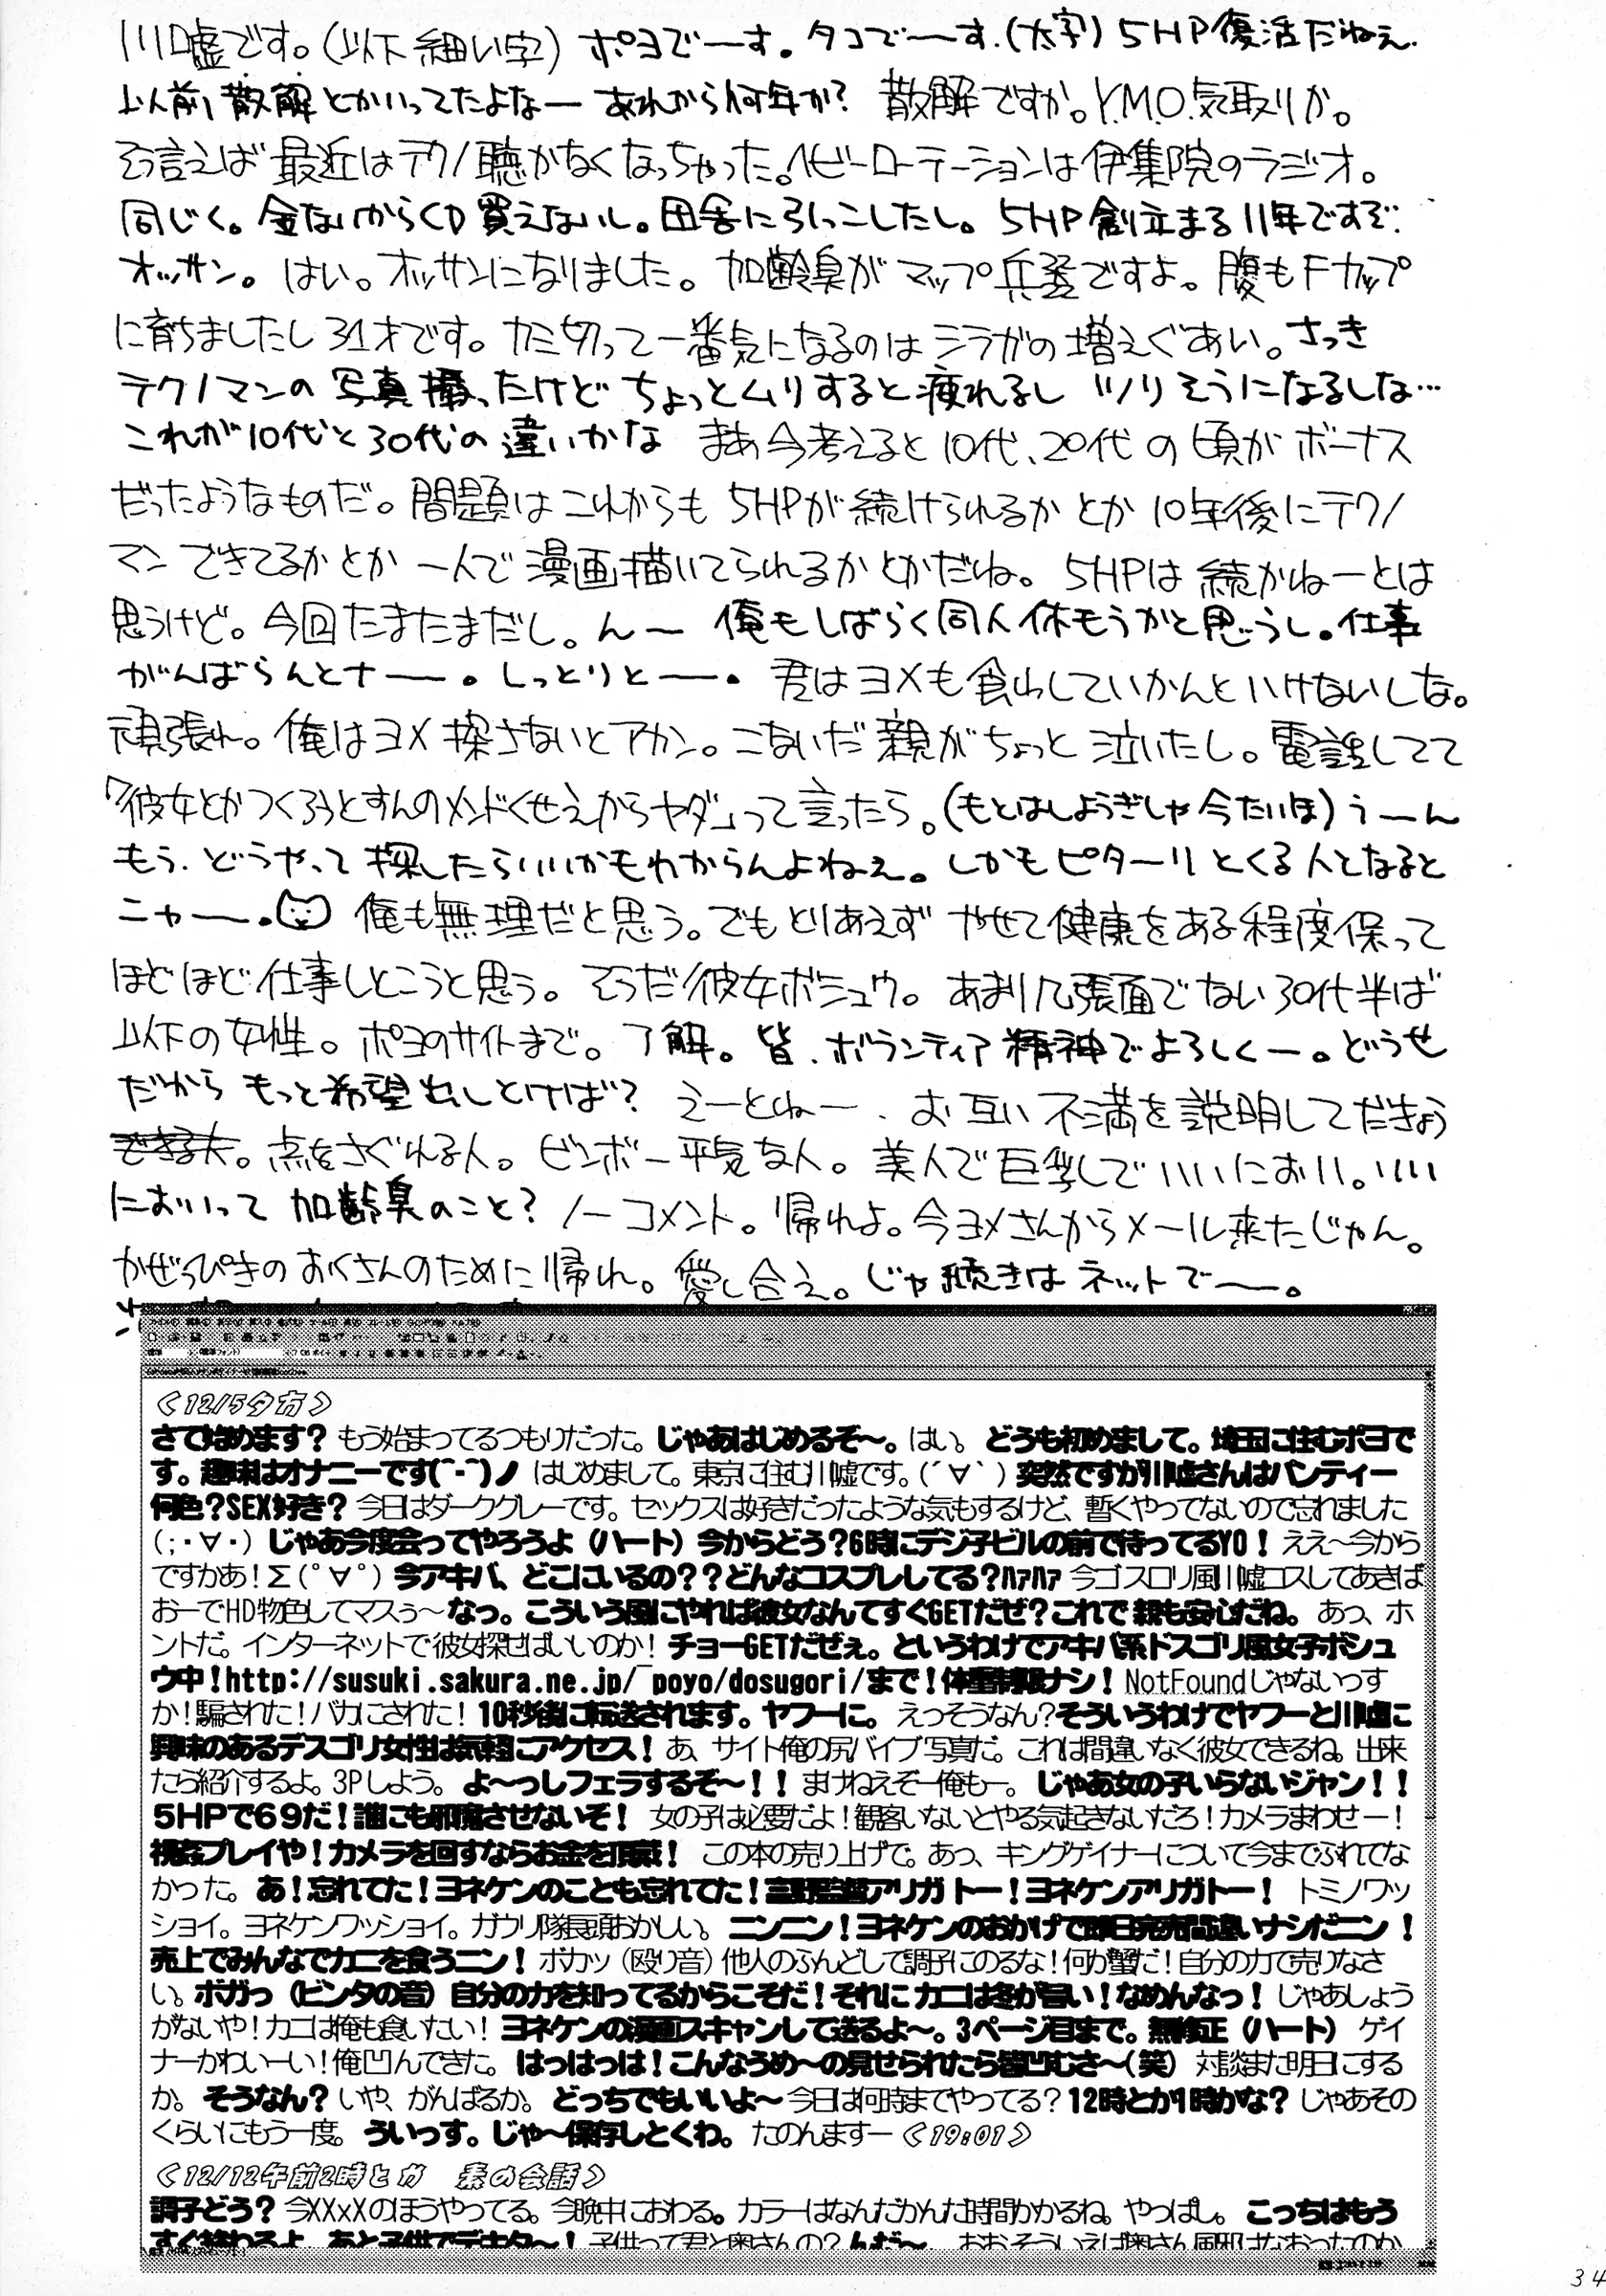 川嘘です。(以下細い字) ポヨでーす。タコでーす.(太字) 5HP復活だねえ.
以前散解とかいってたよなー あれから何年か? 散解ですか。Y.M.O.気取りか。
そう言えば最近はテクノ聴かなくなっちゃった。ヘビーローテーションは伊集院のラジオ。
同じく。金ないからCD買えないし。田舎に引っこしたし。5HP創立まる11年ですぞ.
オッサン。はい。オッサンになりました。加齢臭がマップ兵器ですよ。腹もFカップ
に育ちましたし31才です。カミ切って一番気になるのはシラガの増えぐあい。さっき
テクノマンの写真撮ったけど ちょっとムリすると疲れるし ツリそうになるしな…
これが10代と30代の違いかな まあ今考えると10代、20代の頃がボーナス
だったようなものだ。問題はこれからも5HPが続けられるかとか10年後にテクノ
マンできてるかとか一人で漫画描いてられるかとかだね。5HPは続かねーとは
思うけど。今回たまたまだし。んー 俺もしばらく同人休もうかと思うし。仕事
がんばらんとナー。しっとりとー。君はヨメも食わしていかんといけないしな。
頑張れ。俺はヨメ探さないとアカン。こないだ親がちょっと泣いたし。電話してて
「彼女とかつくろうとすんのメンドくせえからヤダ」って言ったら。(もとはしょうぎしゃ今たいほ)うーん
もう.どうやって探したらいいかもわからんよねえ。しかもピターリとくる人となると
ニャー. 俺も無理だと思う。でもとりあえず やせて健康をある程度保って
ほどほど仕事しとこうと思う。そうだ彼女ボシュウ。あまり几張面でない30代半ば
以下の女性。ポヨのサイトまで。了解。皆.ボランティア精神でよろしくー。どうせ
だから もっと希望出しとけば? えーとねー、お互い不満を説明してだきょう
できる夫。点をさぐれる人。ビンボー平気な人。美人で巨乳しでいいにおい。いい
においって加齢臭のこと? ノーコメント。帰れよ。今ヨメさんからメール来たじゃん。
かぜっぴきのおくさんのために帰れ。愛し合え。じゃ続きはネットでー。
<12/5夕方>
さて始めます? もう始まってるつもりだった。じゃあはじめるぞ〜。はい。どうも初めまして。埼玉に住むポヨで
す。趣味はオナニーです(^-^)ノ はじめまして。東京に住む川嘘です。(´∀`) 突然ですが川嘘さんはパンティー
何色?SEX好き? 今日はダークグレーです。セックスは好きだったような気もするけど、暫くやってないので忘れました
(;・∀・) じゃあ今度会ってやろうよ(ハート)今からどう?6時にデジ子ビルの前で待ってるYO! ええ〜今から
ですかあ!Σ(ﾟ∀ﾟ) 今アキバ、どこにいるの??どんなコスプレしてる?ﾊｧﾊｧ 今ゴスロリ風川嘘コスしてあきば
おーでHD物色してマスぅ〜なっ。こういう風にやれば彼女なんてすぐGETだぜ?これで親も安心だね。あっ、ホ
ントだ。インターネットで彼女探せばいいのか! チョーGETだぜぇ。というわけでアキバ系ドスゴリ風女子ボシュ
ウ中!http://susuki.sakura.ne.jp/~poyo/dosugori/まで!体重制限ナシ! NotFoundじゃないっす
か!騙された!バカにされた! 10秒後に転送されます。ヤフーに。えっそうなん?そういうわけでヤフーと川嘘に
興味のあるデスゴリ女性は気軽にアクセス! あ、サイト俺の尻バイブ写真だ。これは間違いなく彼女できるね。出来
たら紹介するよ。3Pしよう。よ〜っしフェラするぞ〜!! まけねえぞー俺もー。じゃあ女の子いらないジャン!!
5HPで69だ!誰にも邪魔させないぞ! 女の子は必要だよ!観客いないとやる気起きないだろ!カメラまわせー!
視姦プレイや!カメラを回すならお金を頂戴! この本の売り上げで。あっ、キングゲイナーについて今までふれてな
かった。あ!忘れてた!ヨネケンのことも忘れてた!富野監督アリガトー!ヨネケンアリガトー! トミノワッ
ショイ。ヨネケンワッショイ。ガウリ隊長頭おかしい。ニンニン!ヨネケンのおかげで即日完売間違いナシだニン!
売上でみんなでカニを食うニン! ボカッ(殴り音)他人のふんどしで調子にのるな!何が蟹だ!自分の力で売りなさ
い。ボガっ(ビンタの音)自分の力を知ってるからこそだ!それにカニは冬が旨い!なめんなっ! じゃあしょう
がないや!カニは俺も食いたい! ヨネケンの漫画スキャンして送るよ〜。3ページ目まで。無修正(ハート) ゲイ
ナーかわいーい!俺凹んできた。はっはっは!こんなうめ〜の見せられたら皆凹むさ〜(笑) 対談また明日にする
か。そうなん? いや、がんばるか。どっちでもいいよ〜 今日は何時までやってる?12時とか1時かな? じゃあその
くらいにもう一度。ういっす。じゃ〜保存しとくわ。たのんますー <19:01>
<12/12午前2時とか 素の会話>
調子どう? 今XXxXのほうやってる。今晩中におわる。カラーはなんだかんだ時間かかるね。やっぱし。こっちはもう
すぐ終わるよ。あと子供でデキタ〜! 子供って君と奥さんの?んだ〜。おおそういえば奥さん風邪はなおったのか
34